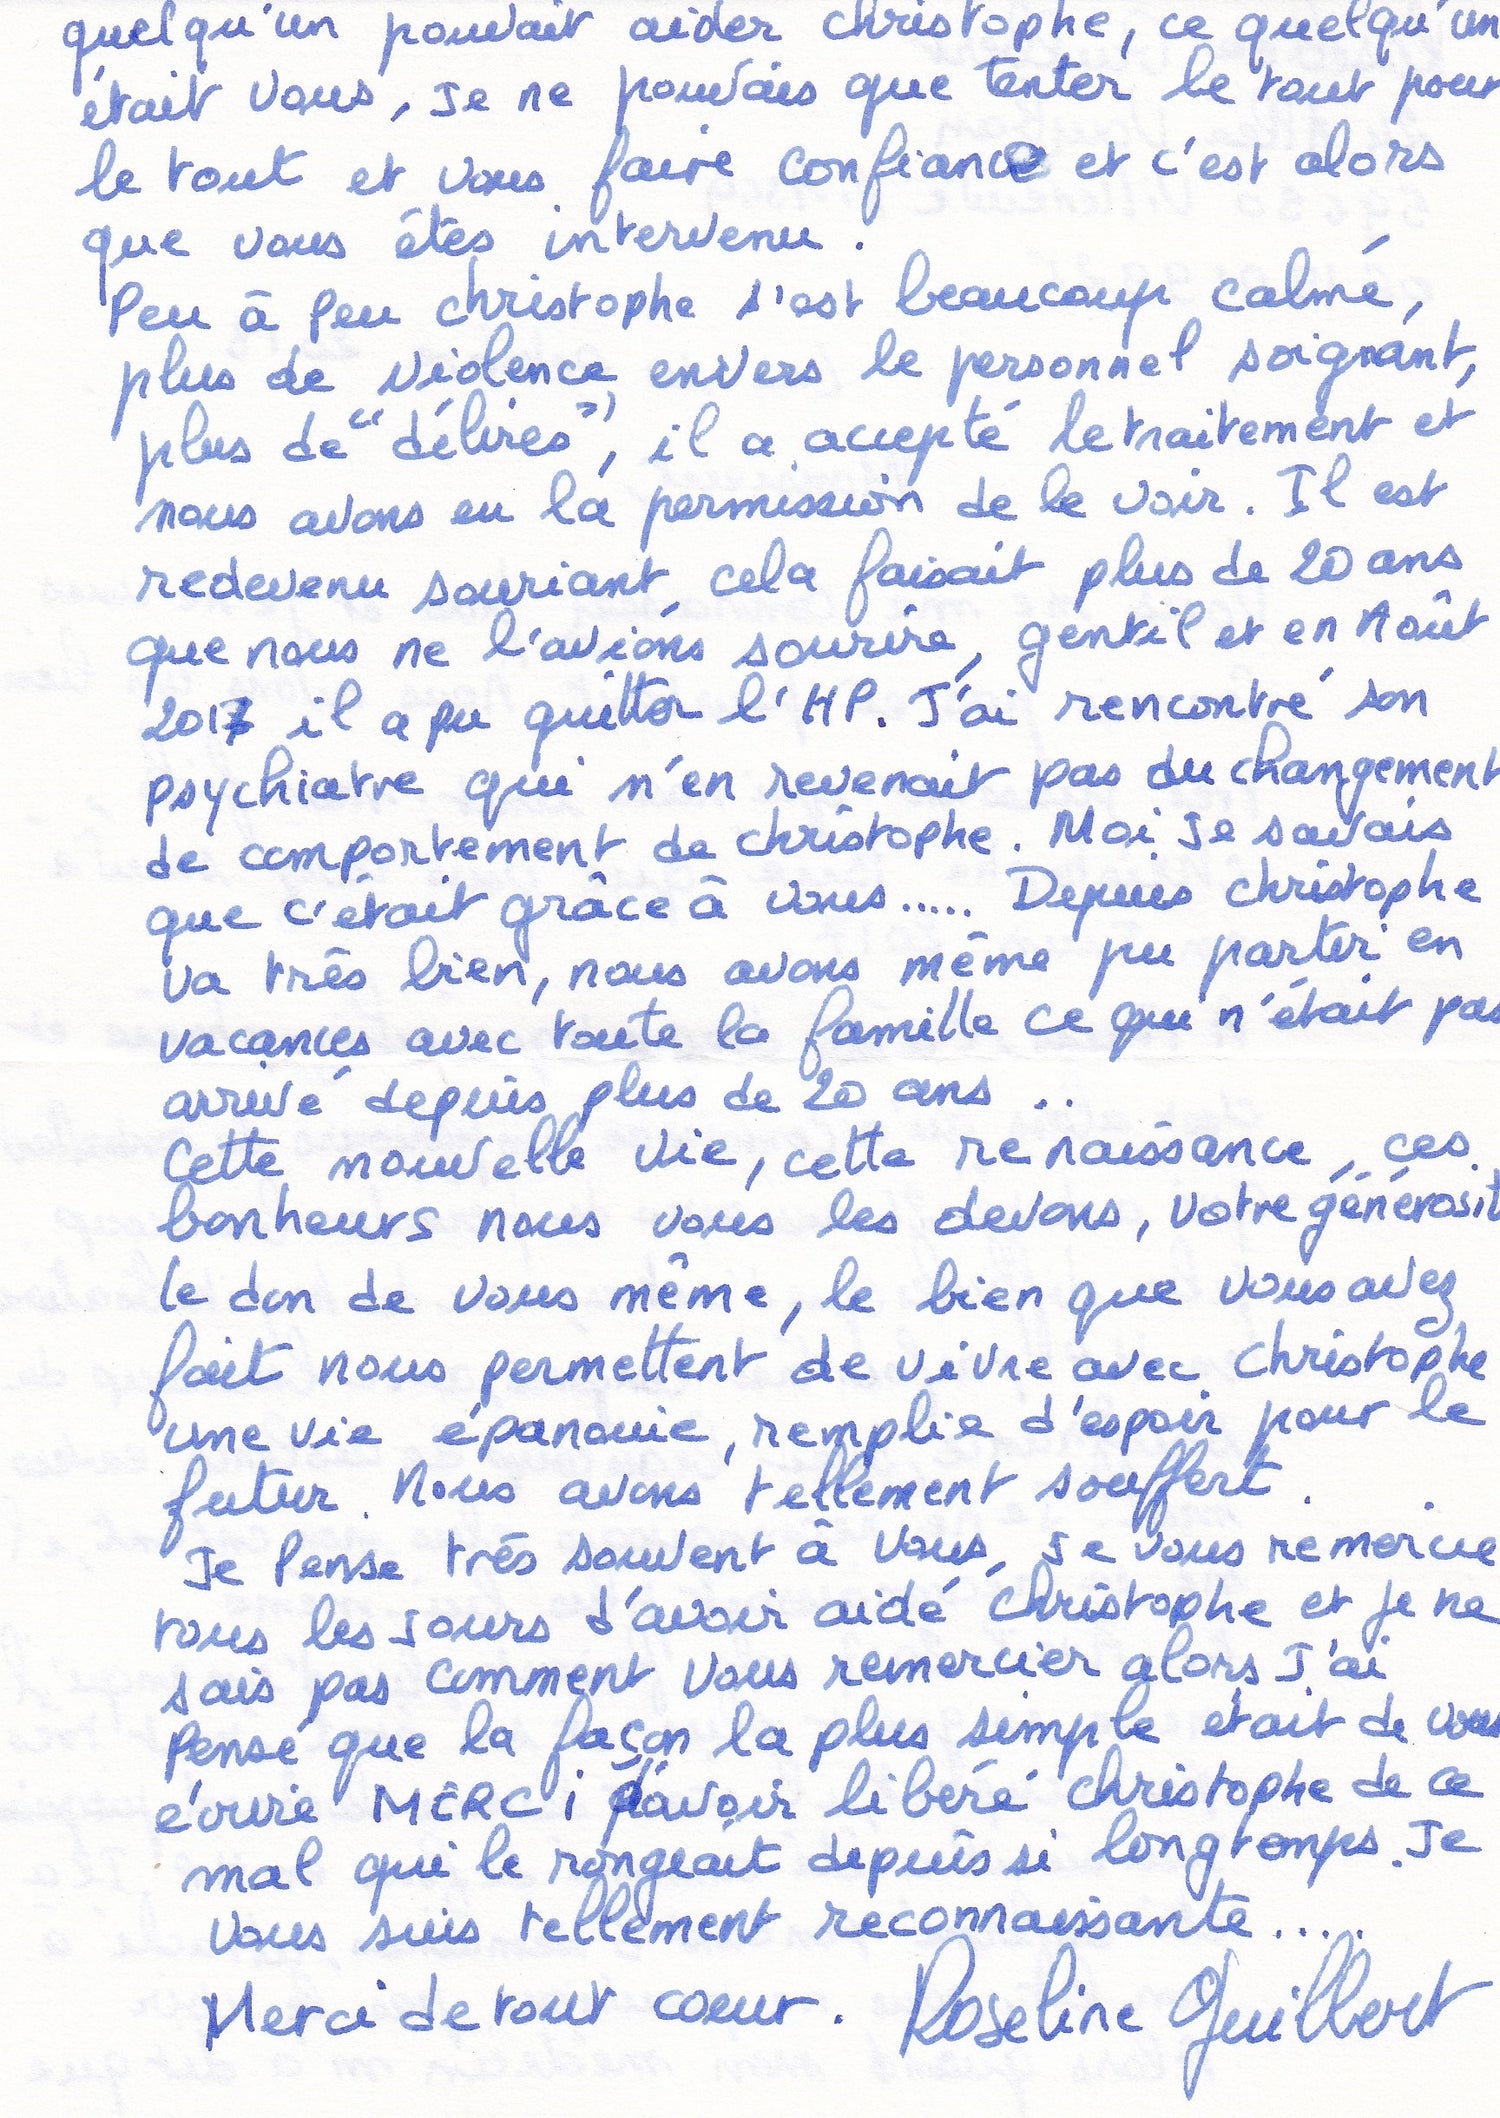 quelqu'un pouvait aider christophe, ce quelqu'un
était vous, je ne pouvais que tenter le tout pour
le tout et vous faire confiance et c'est alors
que vous êtes intervenu.
Peu à peu christophe s'est beaucoup calmé,
plus de violence envers le personnel soignant,
plus de "délires", il a accepté le traitement et
nous avons eu la permission de le voir. Il est
redevenu souriant, cela faisait plus de 20 ans
que nous ne l'avions sourire, gentil et en Août
2017 il a pu quitter l'HP. J'ai rencontré son
psychiatre qui n'en revenait pas du changement
de comportement de christophe. Moi je savais
que c'était grâce à vous..... Depuis christophe
va très bien, nous avons même pu partir en
vacances avec toute la famille ce qui n'était pas
arrivé depuis plus de 20 ans ..
Cette nouvelle vie, cette renaissance, ces
bonheurs nous vous les devons, votre générosit
le don de vous même, le bien que vous avez
fait nous permettent de vivre avec christophe
une vie épanouie, remplie d'espoir pour le
futur. Nous avons tellement souffert.
Je pense très souvent à vous, je vous remercie
tous les jours d'avoir aidé christophe et je ne
sais pas comment vous remercier alors j'ai
pensé que la façon la plus simple était de vous
écrire MERCI d'avoir libéré christophe de ce
mal qui le rongeait depuis si longtemps. Je
vous suis tellement reconnaissante.....
Merci de tout coeur. Roseline Guilbert